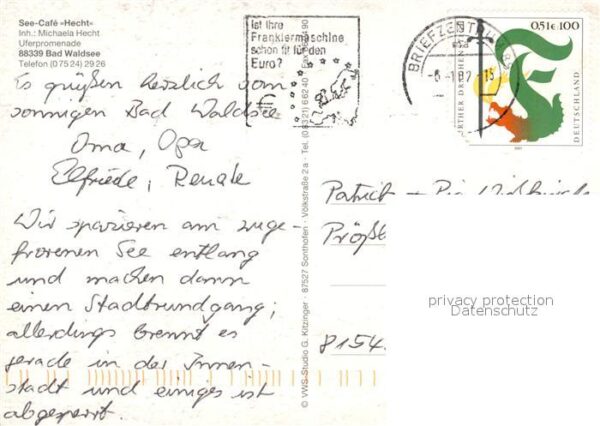 See-Café »Hecht«
Inh.: Michaela Hecht
Uferpromenade
88339 Bad Waldsee
Telefon (0 75 24) 29 26
Es grüßen herzlich vom
sonnigen Bad Waldsee
Oma, Opa
Elfriede, Renate
Wir spazieren am zuge-
frorenen See entlang
und machen dann
einen Stadtrundgang;
allerdings brennt es
gerade in der Innen-
stadt und einiges ist
abgesperrt.
Ist Ihre
Frankiermaschine
schon fit für den
Euro?
€
BRIEFZENTRUM
0,51€ 100
DEUTSCHLAND
© VWS-Studio G. Kitzinger · 87527 Sonthofen · Völkstraße 2a · Tel. (0 83 21) 66 2 40
Patrick
privacy protection
Datenschutz